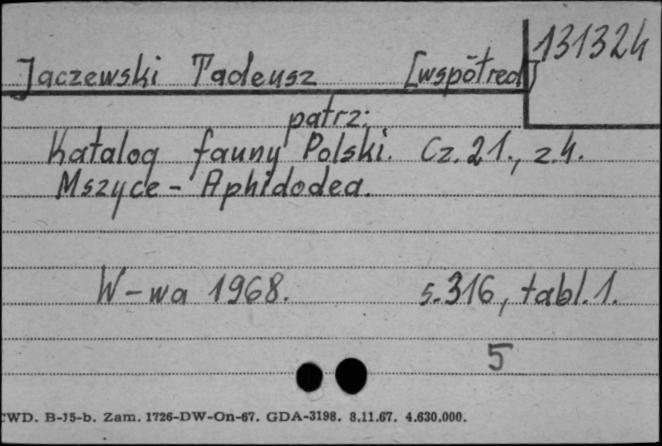 131324
Jaczewski Tadeusz [współred]
patrz:
Katalog fauny Polski. Cz. 21., z.4.
Mszyce - Aphidodea.
W-wa 1968. s. 316, tabl. 1.
5
CWD. B-15-b. Zam. 1726-DW-On-67. GDA-3198. 8.11.67. 4.630.000.